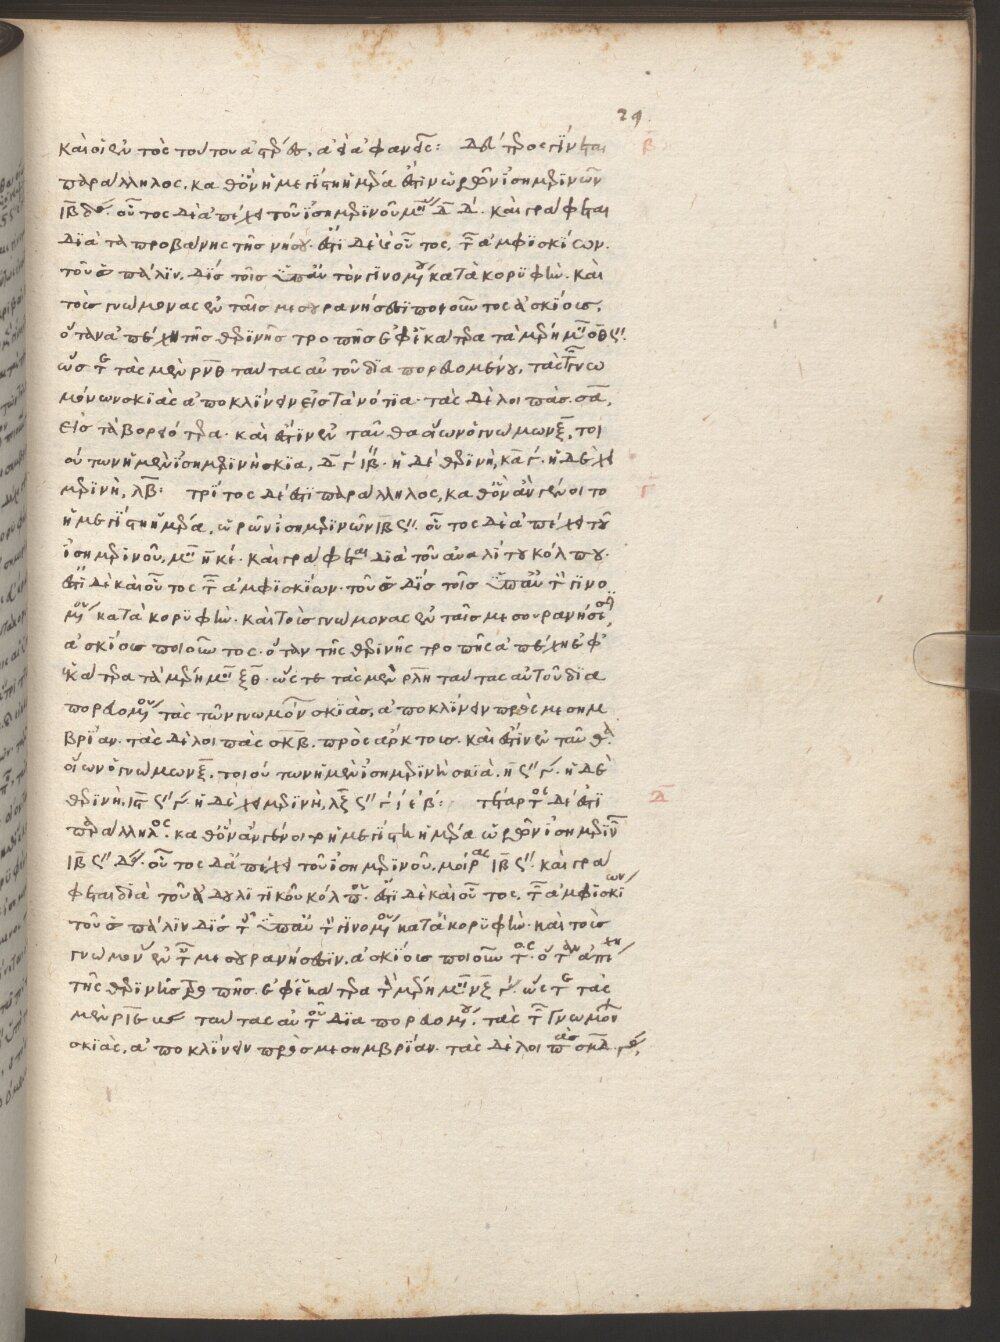 24
καὶ οἱ ἐν τὸς τούτου ἀστέρες, ἀεὶ ἀφανεῖς: Δεύτερος ἐστὶν β̄
παράλληλος, καθ' ὃν ἡ μεγίστη ἡμέρα ἐστὶν ὡρῶν ἰσημερινῶν
ιβ̄ δ´. οὗτος δὲ ἀπέχει τοῦ ἰσημερινοῦ μοι δ̄ δ´. καὶ γράφεται
διὰ ταπροβάνης τῆς νήσου. ἐστὶ δὲ καὶ οὗτος, τῶν ἀμφισκίων.
τοῦ ἡλίου πάλιν, δὶς τοῖς ὑπ' αὐτὸν γινομένου κατὰ κορυφὴν. καὶ
τοὺς γνώμονας ἐν ταῖς μεσουρανήσεσι ποιοῦντος ἀσκίους,
ὅταν ἀπέχῃ τῆς θερινῆς τροπῆς ἐφ' ἑκάτερα τὰ μέρη μοι οθ̄ ς´´.
ὥστε τὰς μὲν ρνθ̄ ταύτας αὐτοῦ διαπορευομένου, τὰς τῶν γνω
μόνων σκιὰς ἀποκλίνειν εἰς τὰ νότια. τὰς δὲ λοιπὰς σᾱ,
εἰς τὰ βορειότερα. καὶ ἐστὶν ἐνταῦθα οἵων ὁ γνώμων ξ̄, τοι
ούτων ἡ μὲν ἰσημερινὴ σκία, δ̄ γ´ ιβ´. ἡ δὲ θερινὴ, κᾱ γ´. ἡ δὲ χει
μερινὴ, λβ̄: τρίτος δέ ἐστι παράλληλος, καθ' ὃν ἂν γένοιτο γ̄
ἡ μεγίστη ἡμέρα, ὡρῶν ἰσημερινῶν ιβ̄ ς´´. οὗτος δὲ ἀπέχει τοῦ
ἰσημερινοῦ, μοι η̄ κε´. καὶ γράφεται διὰ τοῦ ἀναλίτου κόλπου.
ἐστὶ δὲ καὶ οὗτος τῶν ἀμφισκίων. τοῦ ἡλίου δὶς τοῖς ὑπ' αὐτὸν γινο
μένου κατὰ κορυφὴν. καὶ τοὺς γνώμονας ἐν ταῖς μεσουρανήσεσιν
ἀσκίους ποιοῦντος. ὅταν τῆς θερινῆς τροπῆς ἀπέχῃ ἐφ'
ἑκάτερα τὰ μέρη μοι ξθ̄. ὥστε τὰς μὲν ρλη̄ ταύτας αὐτοῦ δια
πορευομένου τὰς τῶν γνωμόνων σκιὰς, ἀποκλίνειν πρὸς μεσημ
βρίαν. τὰς δὲ λοιπὰς σκβ̄. πρὸς ἄρκτους. καὶ ἐστὶν ἐνταῦθα
οἵων ὁ γνώμων ξ̄, τοιούτων ἡ μὲν ἰσημερινὴ σκιὰ, η̄ ς´´ γ´. ἡ δὲ
θερινὴ, ις̄ ς´´ γ´ ἡ δὲ χειμερινὴ, λζ̄ ς´´ γ´ ιε´ β´: τέταρτος δέ ἐστι δ̄
παράλληλος. καθ' ὃν ἂν γένοιτο ἡ μεγίστη ἡμέρα ὡρῶν ἰσημερινῶν
ιβ̄ ς´´ δ´. οὗτος δ' ἀπέχει τοῦ ἰσημερινοῦ, μοίρας ιβ̄ ς´´. καὶ γρά
φεται διὰ τοῦ ἀδουλιτικοῦ κόλπου. ἐστὶ δὲ καὶ οὗτος, τῶν ἀμφισκίων
τοῦ ἡλίου πάλιν δὶς τοῖς ὑπ' αὐτὸν γινομένου κατὰ κορυφὴν. καὶ τοὺς
γνώμονας ἐν ταῖς μεσουρανήσεσιν, ἀσκίους ποιοῦντος. ὅταν ἀπέχῃ
τῆς θερινῆς τροπῆς. ἐφ' ἑκάτερα τὰ μέρη μοι νζ̄ γ´. ὥστε τὰς
μὲν ριε̄ γο ταύτας αὐτοῦ διαπορευομένου, τὰς τῶν γνωμόνων
σκιὰς, ἀποκλίνειν πρὸς μεσημβρίαν. τὰς δὲ λοιπὰς σμδ̄. γ´,